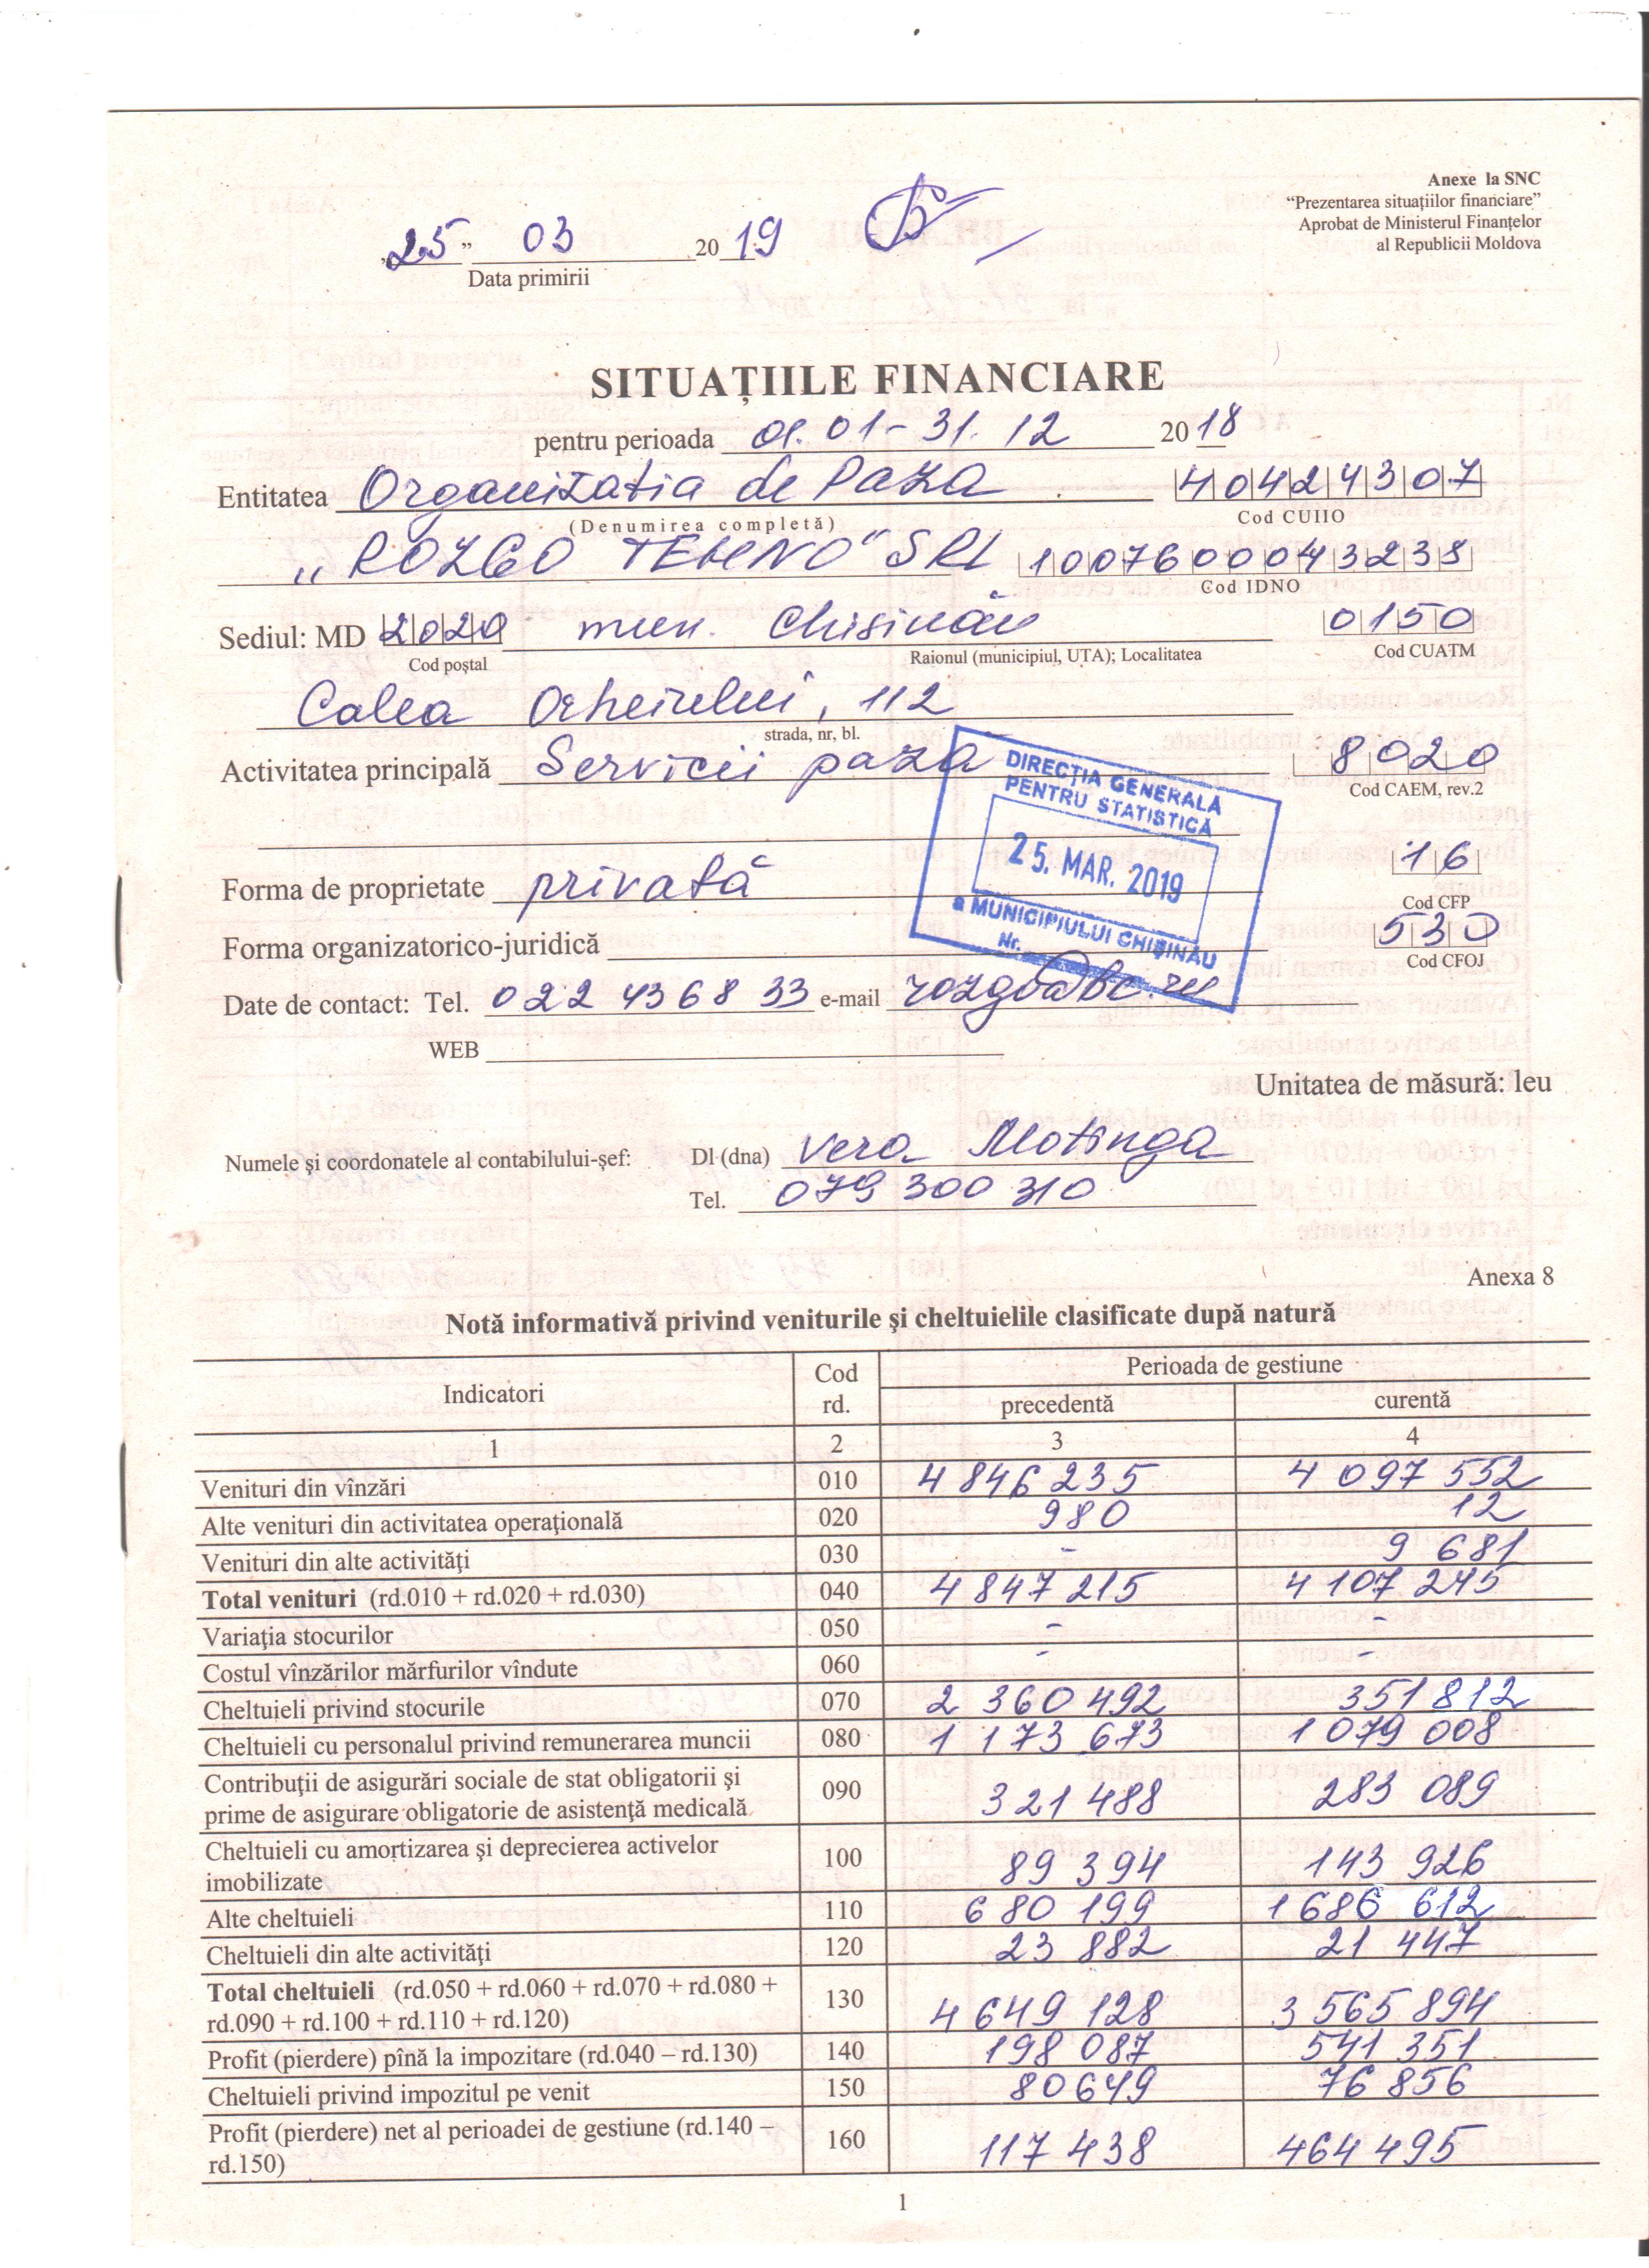 Anexe la SNC
“Prezentarea situaţiilor financiare”
Aprobat de Ministerul Finanţelor
al Republicii Moldova
„25” 03 2019
Data primirii
SITUAŢIILE FINANCIARE
pentru perioada 01.01 - 31.12 2018
Entitatea Organizatia de Paza 40424307
(Denumirea completă) Cod CUIIO
„ROZGO TEHNO" SRL 1007600043238
Cod IDNO
Sediul: MD 2020 mun. Chisinău 0150
Cod poştal Raionul (municipiul, UTA); Localitatea Cod CUATM
Calea Orheiului, 112
strada, nr, bl.
Activitatea principală Servicii paza 8020
Cod CAEM, rev.2
DIRECŢIA GENERALĂ
PENTRU STATISTICĂ
25. MAR. 2019
a MUNICIPIULUI CHIŞINĂU
Nr.
Forma de proprietate privată 16
Cod CFP
Forma organizatorico-juridică 530
Cod CFOJ
Date de contact: Tel. 022 436833 e-mail rozgo@bc.ru
WEB
Unitatea de măsură: leu
Numele şi coordonatele al contabilului-şef: Dl (dna) Vera Motinga
Tel. 079 300 310
Anexa 8
Notă informativă privind veniturile şi cheltuielile clasificate după natură
Indicatori Cod rd. Perioada de gestiune
precedentă curentă
1 2 3 4
Venituri din vînzări 010 4 846 235 4 097 552
Alte venituri din activitatea operaţională 020 980 12
Venituri din alte activităţi 030 - 9 681
Total venituri (rd.010 + rd.020 + rd.030) 040 4 847 215 4 107 245
Variaţia stocurilor 050 - -
Costul vînzărilor mărfurilor vîndute 060 - -
Cheltuieli privind stocurile 070 2 360 492 351 812
Cheltuieli cu personalul privind remunerarea muncii 080 1 173 673 1 079 008
Contribuţii de asigurări sociale de stat obligatorii şi
prime de asigurare obligatorie de asistenţă medicală 090 321 488 283 089
Cheltuieli cu amortizarea şi deprecierea activelor
imobilizate 100 89 394 143 926
Alte cheltuieli 110 680 199 1 686 612
Cheltuieli din alte activităţi 120 23 882 21 447
Total cheltuieli (rd.050 + rd.060 + rd.070 + rd.080 +
rd.090 + rd.100 + rd.110 + rd.120) 130 4 649 128 3 565 894
Profit (pierdere) pînă la impozitare (rd.040 – rd.130) 140 198 087 541 351
Cheltuieli privind impozitul pe venit 150 80649 76 856
Profit (pierdere) net al perioadei de gestiune (rd.140 –
rd.150) 160 117 438 464 495
1